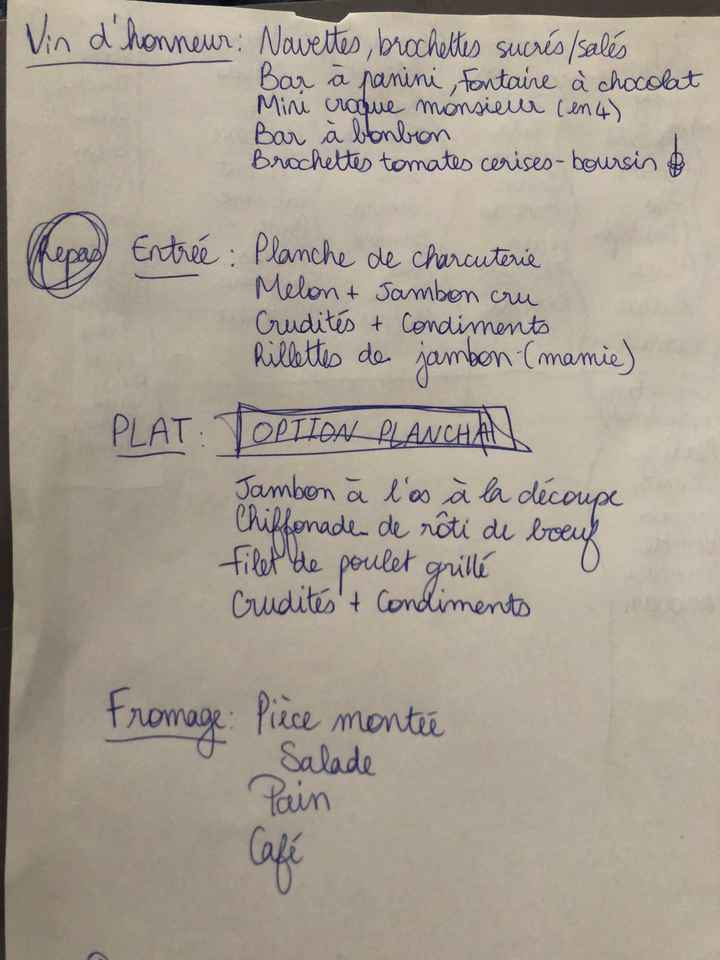 Vin d'honneur : Navettes, brochettes sucrés/salés
Bar à panini, fontaine à chocolat
Mini croque monsieur (en 4)
Bar à bonbon
Brochettes tomates cerises - boursin
Repas Entrée : Planche de charcuterie
Melon + Jambon cru
Crudités + Condiments
Rillettes de jambon (mamie)
PLAT : OPTION PLANCHA
Jambon à l'os à la découpe
Chiffonade de rôti de boeuf
filet de poulet grillé
Crudités + Condiments
Fromage : Pièce montée
Salade
Pain
Café